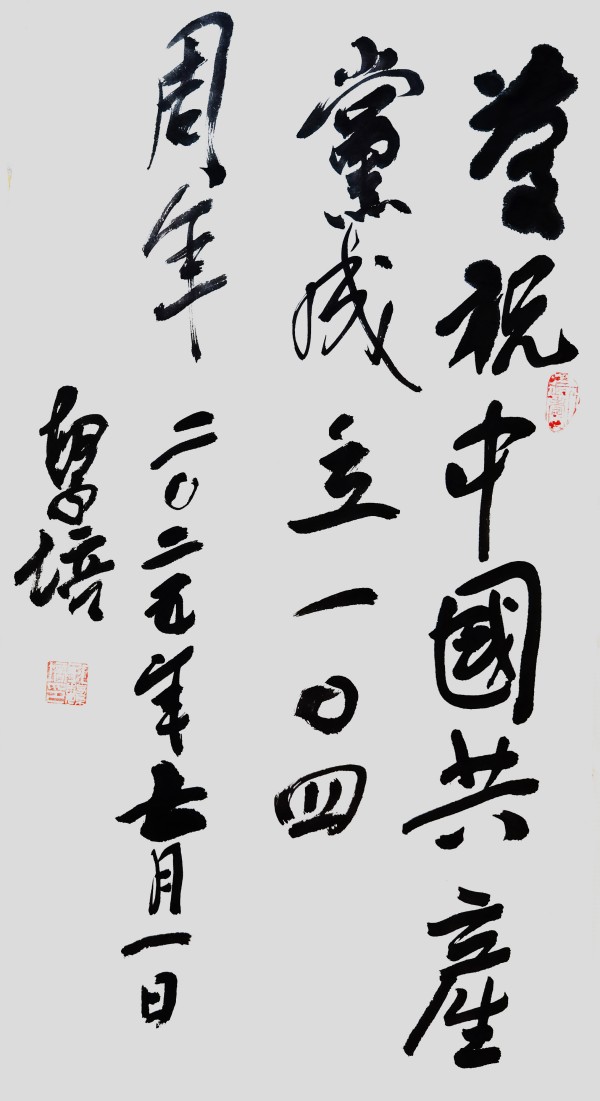 慶祝中國共產
黨成立一〇四
周年
二〇二五年七月一日
培